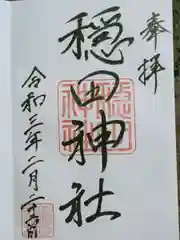 奉拝
穏田神社
令和三年二月二十六日